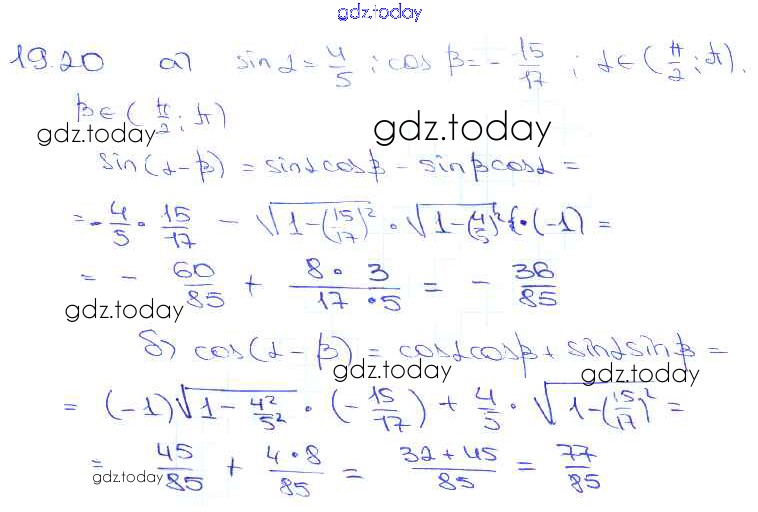 gdz.today
19.20 а) sin α = 4/5 ; cos β = - 15/17 ; α ∈ (π/2 ; π).
β ∈ (π/2 ; π)
gdz.today gdz.today
sin(α - β) = sinα cosβ - sinβ cosα =
= - 4/5 · 15/17 - √(1-(15/17)²) · √(1-(4/5)²) · (-1) =
= - 60/85 + (8 · 3)/(17 · 5) = - 36/85
gdz.today
б) cos(α - β) = cosα cosβ + sinα sinβ =
gdz.today gdz.today
= (-1)√(1 - 4²/5²) · (- 15/17) + 4/5 · √(1-(15/17)²) =
= 45/85 + (4 · 8)/85 = (32 + 45)/85 = 77/85
gdz.today